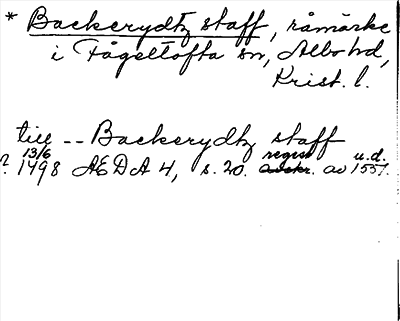 * Backerydtz staff, råmärke
i Fågeltofta sn, Albo hd,
Krist. l.
till -- Backerydtz staff
? 13/6 1498 AEDA 4, s. 20. regist av u.d. 1557.